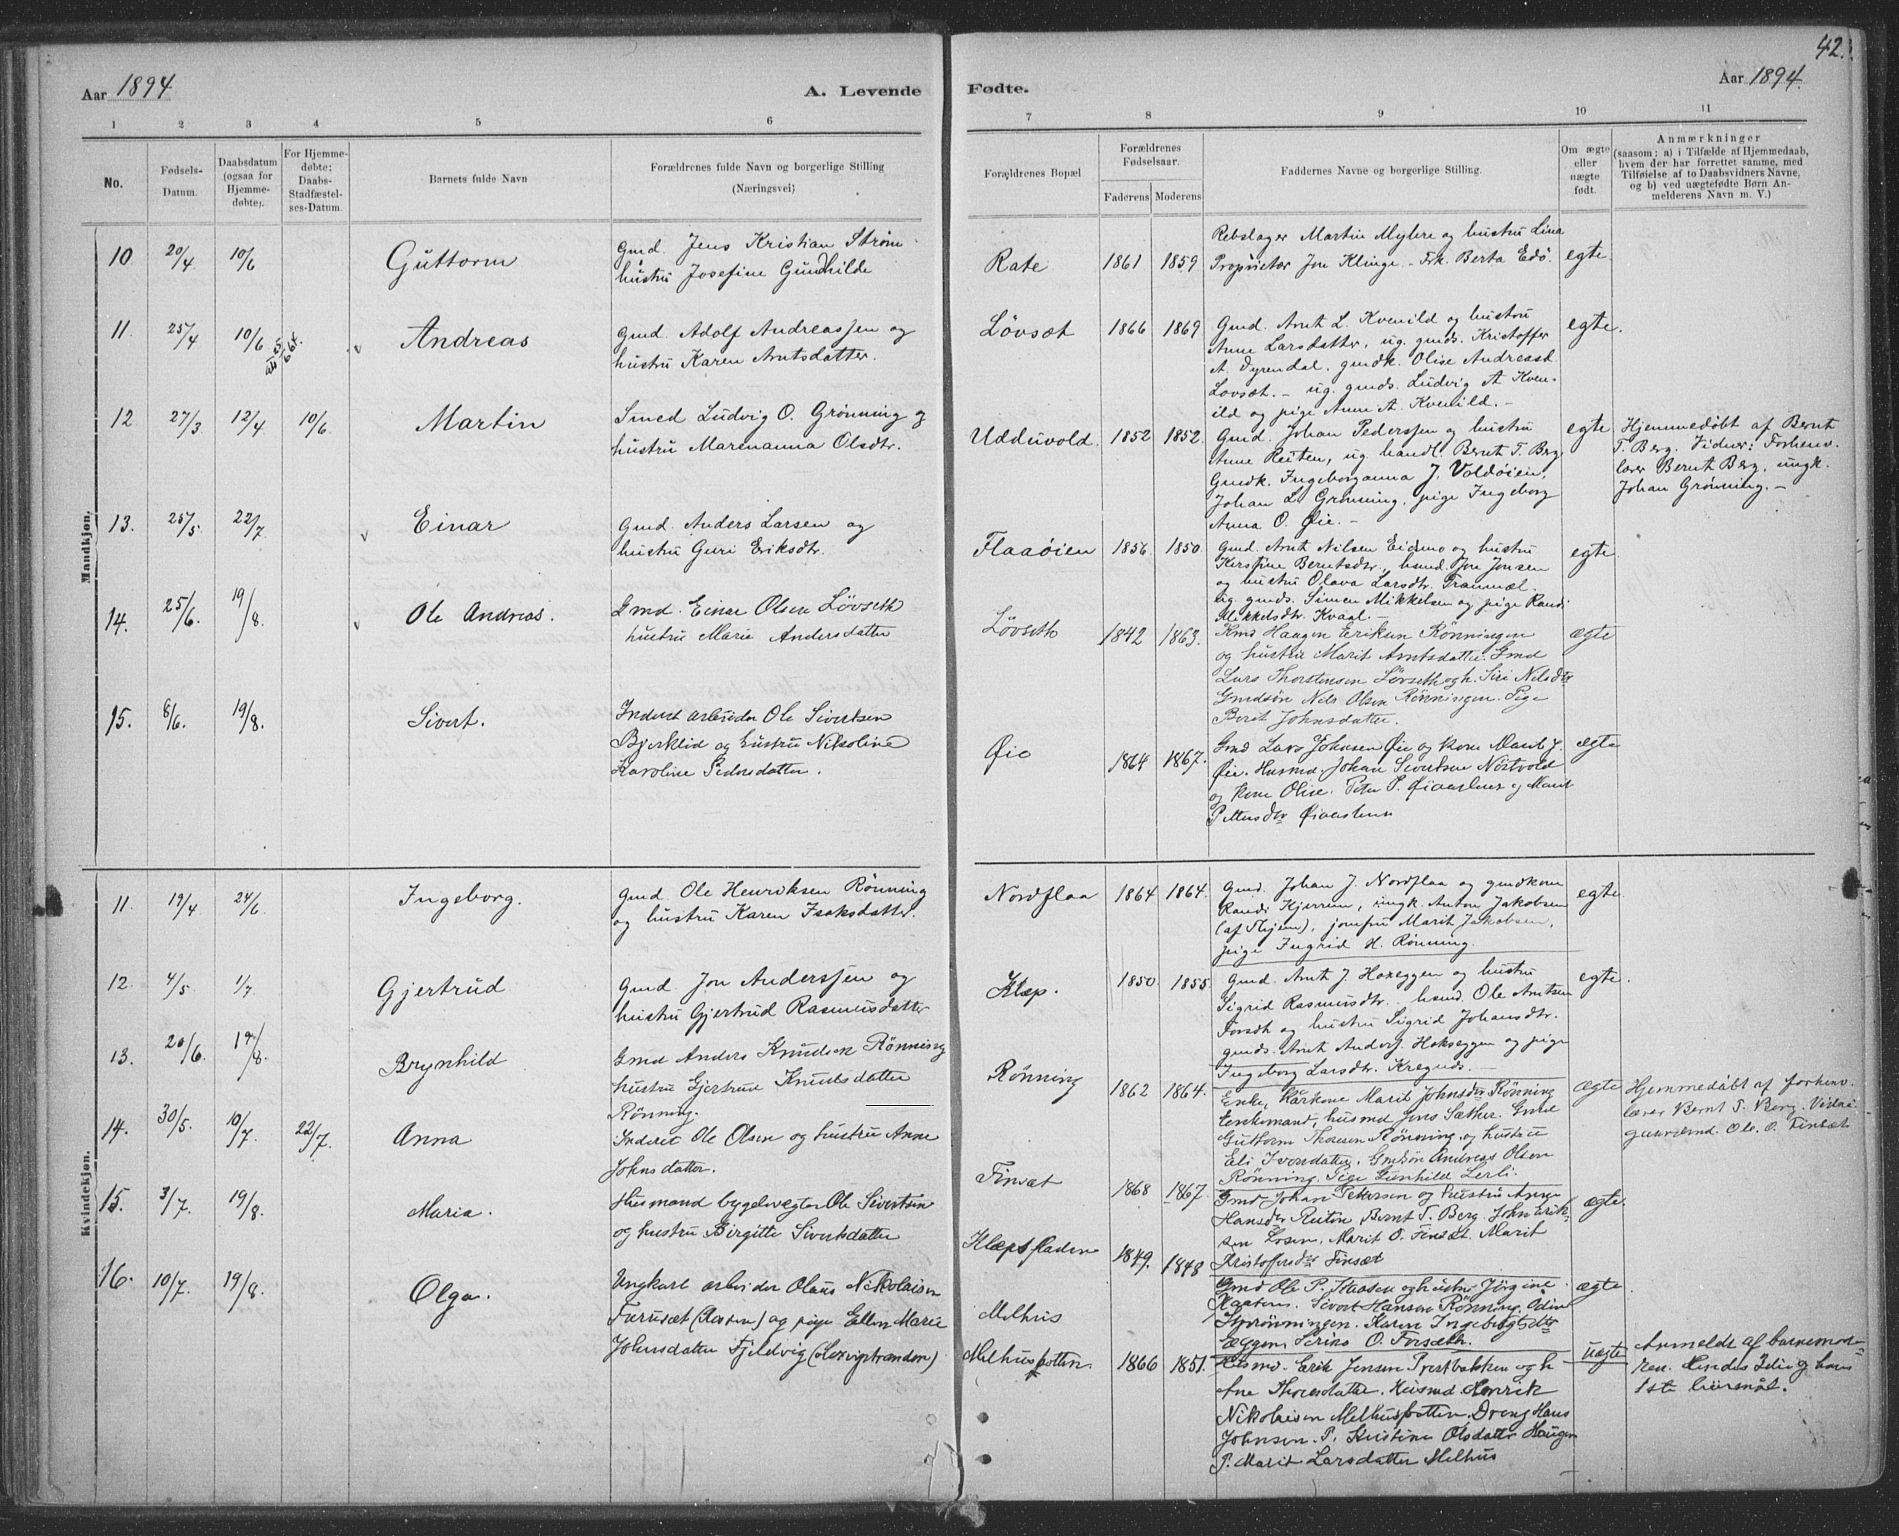 42.
Aar 1894
A. Levende
Fødte.
Aar 1894.
1 2 3 4 5 6
7 8 9 10 11
No.
Fødsels-Datum.
Daabsdatum (ogsaa for Hjemme-døbte).
For Hjemme-døbte; Daabs-Stadfæstel-ses-Datum.
Barnets fulde Navn
Forældrenes fulde Navn og borgerlige Stilling (Næringsvei)
Forældrenes Bopæl
Forældrenes Fødselsaar.
Faderens Moderens
Faddernes Navne og borgerlige Stilling.
Om ægte eller uægte født.
Anmærkninger
(saasom: a) i Tilfælde af Hjemmedaab,
hvem der har forrettet samme, med
Tilføielse af to Daabsvidners Navne,
og b) ved uægtefødte Børn An-
melderens Navn m. V.)
Mandkjøn.
10 20/4 10/6 Guttorm
Gmd. Jens Kristian Strøm
hustru Josefine Gundhilde
Rate 1861 1859
Rebslager Martin Myhre og hustru Lina
Proprietær Jon Klinge - Frk. Berta Edø.
egte.
11. 25/4 10/6 Andreas
Gmd. Adolf Andreassen og
hustru Karen Arntsdatter.
Løvsæt 1866 1869
Gmd. Arnt L. Kvenild og hustru
Anne Larsdatter, ug. gmds. Kristoffer
A. Dyrendal, gmdk. Olise Andreasd.
Løvsæt. - ug. gmds. Ludvig A. Kven-
ild og pige Anne A. Kvenild. -
egte.
12 27/3 12/4 10/6 Martin
Smed Ludvig O. Grønning og
hustru Marenanna Olsdtr.
Udduvold. 1852 1852.
Gmd. Johan Pederssen og hustru
Anne Reiten, ug. handl. Bernt T. Berg
Gmdk. Ingeborganna J. Voldøien,
Johan L. Grønning, pige Ingeborg
Anna O. Øie. -
egte
Hjemmedøbt af Bernt
T. Berg. Vidner: Forhenv.
lærer Bernt Berg, ungk.
Johan Grønning. -
13. 25/5 22/7 Einar
Gmd. Anders Larsen og
hustru Guri Eriksdtr.
Flaaøien 1856. 1850.
Gmd. Arnt Nilsen Eidsmo og hustru
Kerstine Berntsdtr., husmd. Jon Jonsen
og hustru Olava Larsdtr. Tranmæl.
ug. gmds. Simen Mikkelsen og pige Randi
Mikkelsdtr. Kvaal. -
egte
14. 25/6. 19/8. Ole Andreas.
Gmd. Einar Olsen Løvseth
hustru Marie Andersdatter
Løvseth 1842 1863.
Gmd Haagen Eriksen Rønningen
og hustru Marit Arntsdatter. Gmd
Lars Thorstensen Løvseth og h. Siri Nilsdtr
Gmdsøn Nils Olsen Rønningen. Pige
Berit Johnsdatter.
ægte
15. 8/6. 19/8. Sivert.
Inderst arbeider Ole Sivertsen
Bjerklid og hustru Nikoline
Karoline Pedersdatter.
Øie 1864 1867.
Gmd Lars Johnsen Øie og kone Marit J.
Øie. Husmd Johan Sivertsen Nøstvold
og kone Olise. Peter P. Øiaashus og Marit
Pettersdtr Øiaashus
ægte
Kvindekjøn.
11. 19/4 24/6 Ingeborg.
Gmd. Ole Henriksen Rønning
og hustru Karen Isaksdatter.
Nordflaa 1864 1864.
Gmd. Johan J. Nordflaa og gmdkone
Randi Kjerrem, ungk. Anton Jakobsen
jomfru Marit Jakobsen,
pige Ingrid H. Rønning.
egte.
12. 4/5 1/7 Gjertrud
Gmd. Jon Anderssen og
hustru Gjertrud Rasmusdatter
Klæp. 1850. 1855
Gmd. Arnt J. Hoxeggen og hustru
Sigrid Rasmusdtr. - husmd. Ole Arntsen
Forsæt og hustru Sigrid Johansdtr.
gmds. Arnt Anders. Hokseggen og pige
Ingeborg Larsdtr. Kregnds. -
egte.
13. 20/6. 19/8. Brynhild
Gmd Anders Knudsen Rønning
hustru Gjertrud Knudsdatter
Rønning.
Rønning 1862 1864.
Enke Kårkone Marit Johnsdtr Rønning
Enkemand, husmd Jens Sæther. Gmd
Guttorm Thoresen Rønning og hustru
Eli Iversdatter, Gmdsøn Andreas Olsen
Rønning. Pige Gunhild Lerli.
ægte
14. 30/5. 10/7. 22/7. Anna
Inderst Ole Olsen og hustru Anne
Johnsdatter.
Finsæt 1868 1867.
Gmd Johan Petersen og hustru Anne
Hansdtr Reiten, Bernt T. Berg, John Erik-
sen Losen, Marit O. Finsæt. Marit
Kristoffersdtr Finsæt
ægte.
Hjemmedøbt af forhenv.
lærer Bernt T. Berg. Vidne
Ole. O. Finsæt
15. 3/7. 19/8. Maria.
Husmand bygdevægter Ole Sivertsen
og hustru Birgitte Sivertsdatter
Klæpsfladen 1849. 1848
Gmd Ole P. Kaasen og hustru Jørgine
Kaasen. Sivert Hansen Rønning. Odin
Karen Ingebrigtsdtr
Eggen. Serine O. Forseth.
ægte
16. 10/7. 19/8. Olga.
Ungkarl arbeider Olaus Nikolaisen
Furusæt og pige Ellen Marie
Johnsdatter Fjeldvig
Melhus
Melhusbotten. 1866 1851.
Husmd. Erik Jensen Prestbakken og h
Ane Thoresdatter. Husmd Henrik
Nikolaisen Melhusbotten. Dreng Hans
Johnsen. P. Kristine Olsdatter Haugen
P. Marit Larsdatter Melhus
uægte
Anmeldt af barnemod-
ren. Hendes 2die og hans
1ste leiermål.